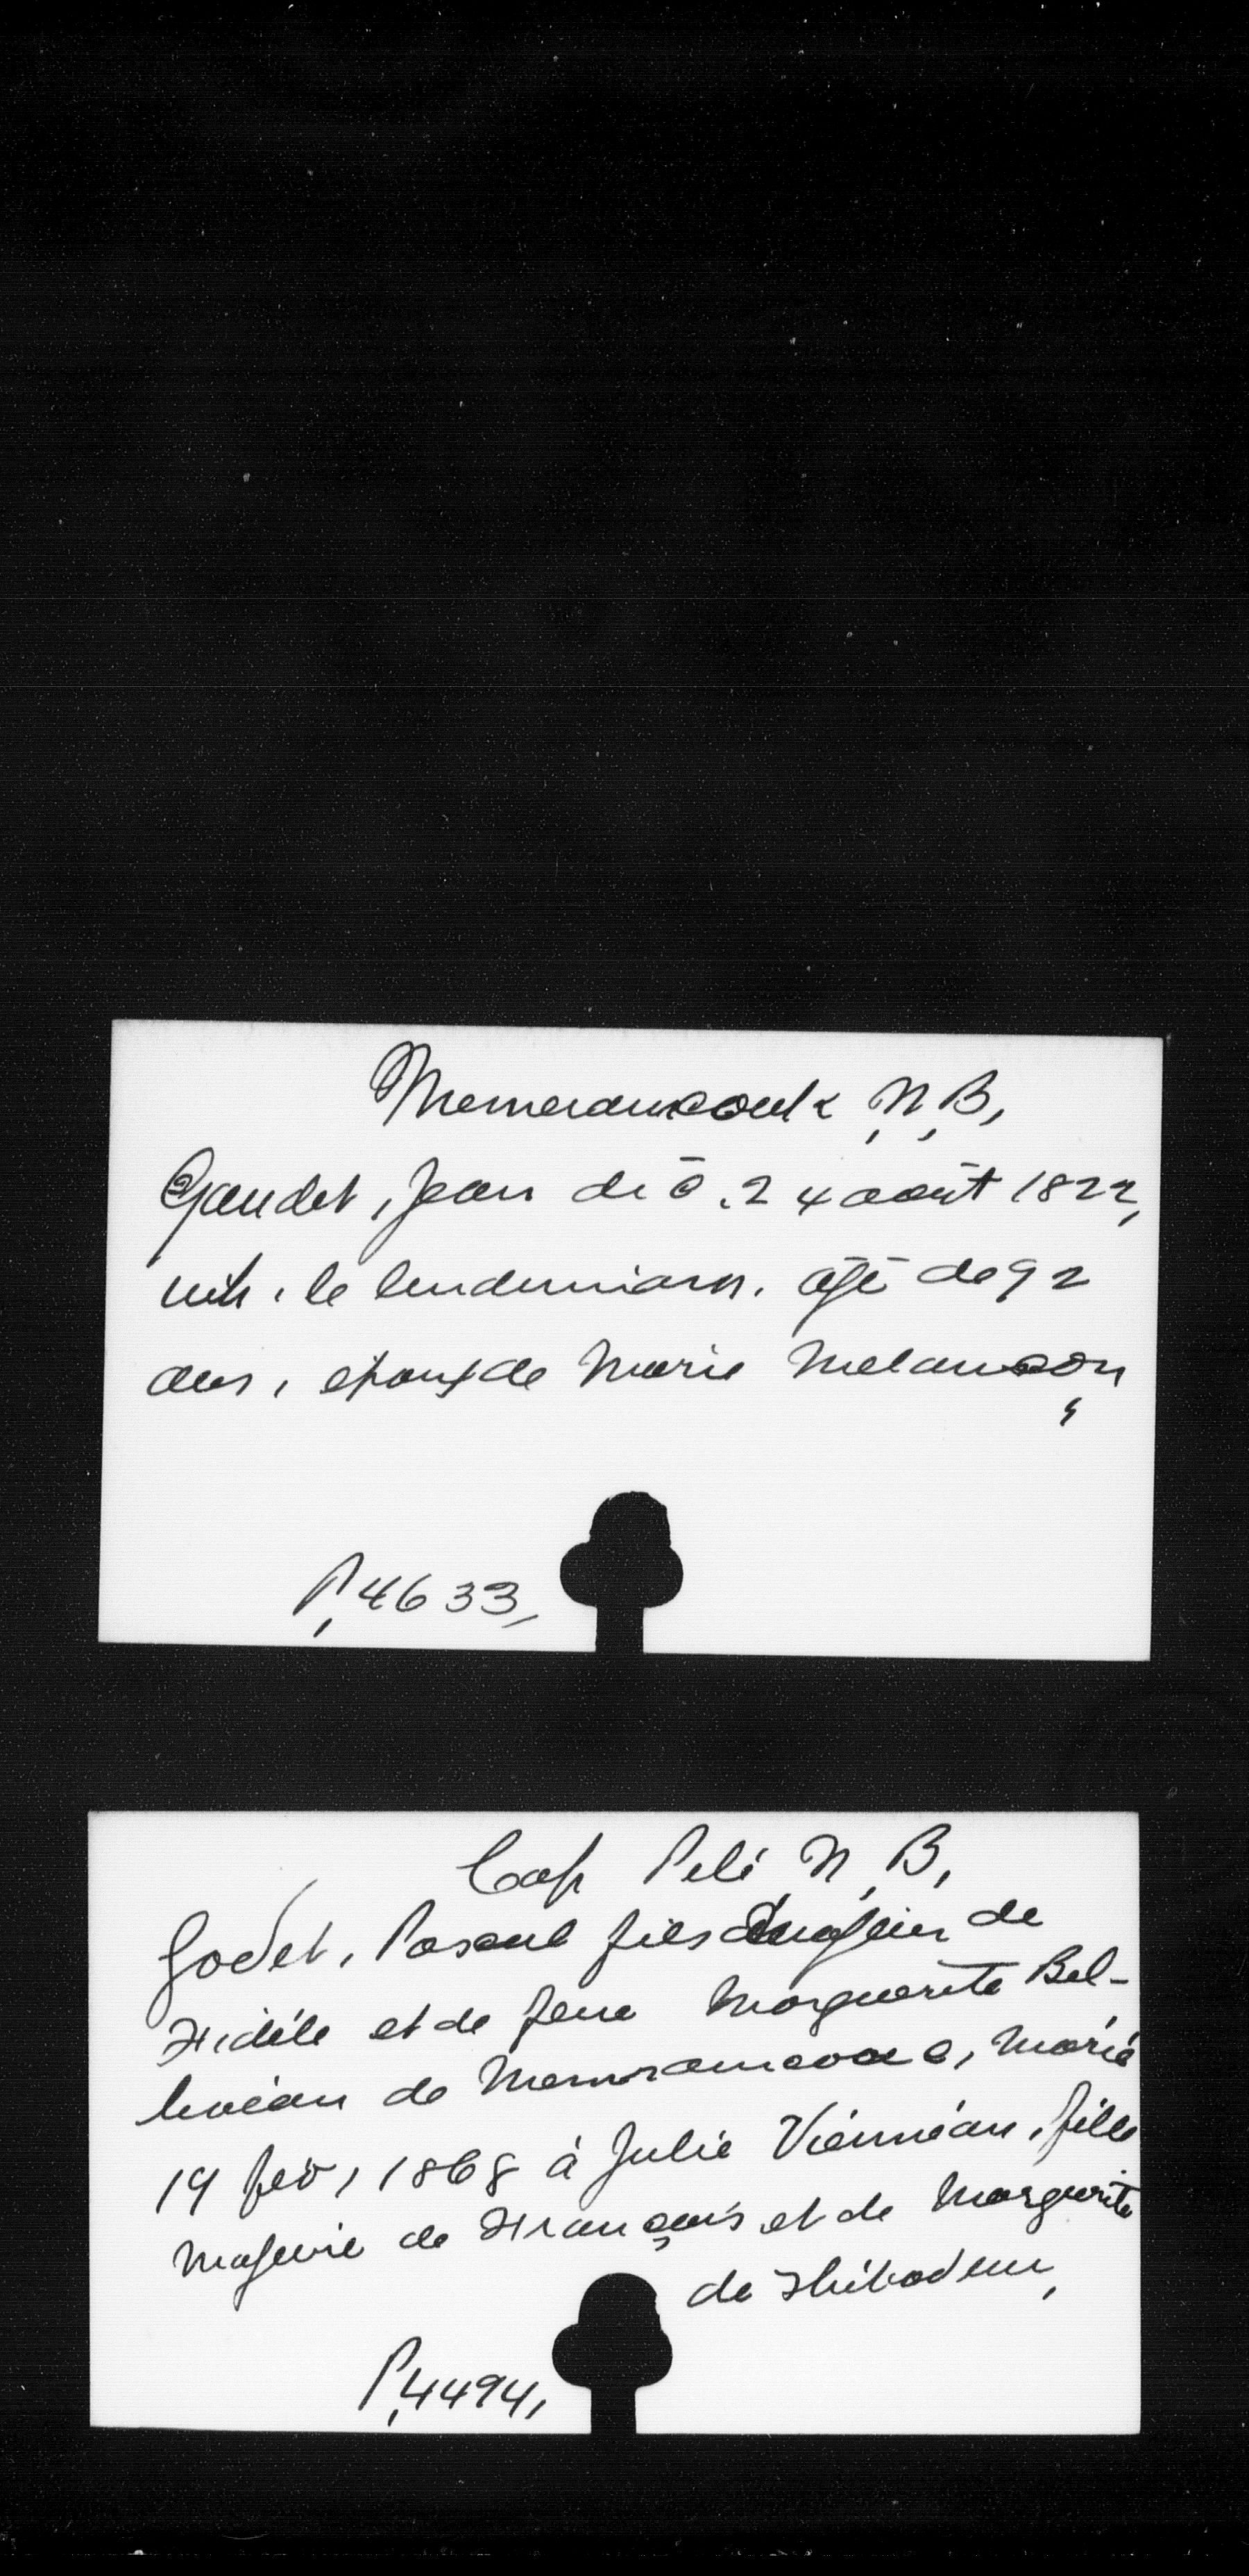 Memramcook N.B,
Gaudet, Jean décé. 24 août 1822,
inh. le lendemain. âgé de 92
ans, époux de Marie Melançon,
P.4633,
Cap Pelé N.B,
Godet, Pascal fils majeur de
Fidèle et de feue Marguerite Bel-
liveau de Memramcook, marié
19 fev, 1868 à Julie Vienneau, fille
majeure de François et de Marguerite
de Thibodeau,
P.4494,